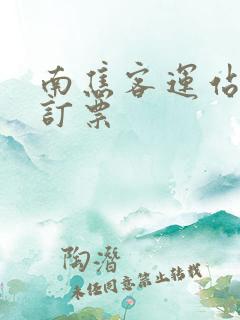 南焦客運佔
訂票
陶潛
未经同意禁止转载